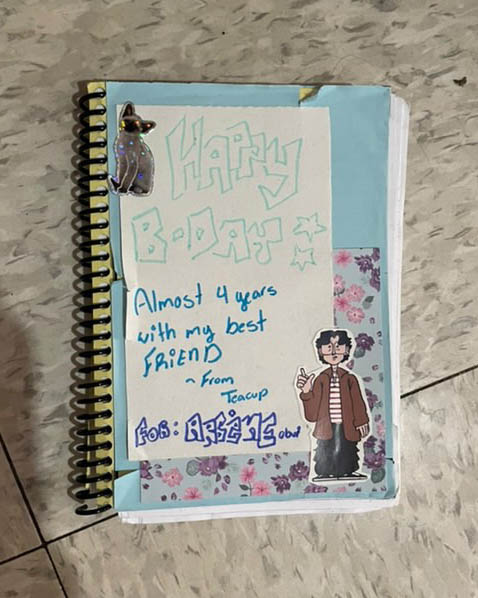 HAPPY
B-DAY!
Almost 4 years
with my best
FRIEND
~ From
Teacup
FOR: ARSÈNE